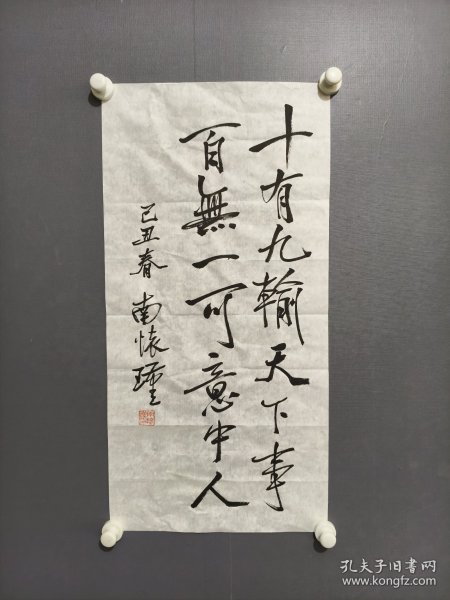 十有九輸天下事
百無一可意中人
己丑春 南懷瑾
孔夫子旧书网
www.kongfz.com